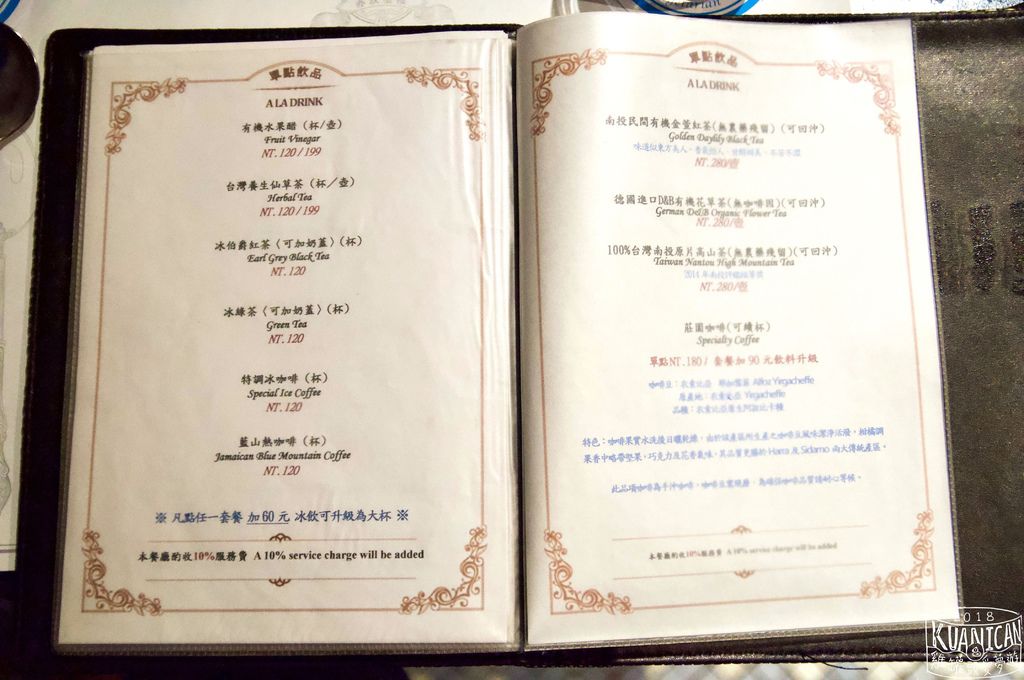 單點飲品
A LA DRINK
有機水果醋（杯/壺）
Fruit Vinegar
NT. 120 / 199
台灣養生仙草茶（杯／壺）
Herbal Tea
NT. 120 / 199
冰伯爵紅茶〈可加奶蓋〉（杯）
Earl Grey Black Tea
NT. 120
冰綠茶〈可加奶蓋〉（杯）
Green Tea
NT. 120
特調冰咖啡（杯）
Special Ice Coffee
NT. 120
藍山熱咖啡（杯）
Jamaican Blue Mountain Coffee
NT. 120
※ 凡點任一套餐 加 60 元 冰飲可升級為大杯 ※
本餐廳酌收10%服務費 A 10% service charge will be added
單點飲品
A LA DRINK
南投民間有機金萱紅茶(無農藥殘留) (可回沖)
Golden Daylily Black Tea
味道似東方美人，
NT. 280/壺
德國進口D&B有機花草茶(無咖啡因)(可回沖)
German D&B Organic Flower Tea
NT. 280/壺
100%台灣南投原片高山茶(無農藥殘留)(可回沖)
Taiwan Nantou High Mountain Tea
2014 年南投評鑑
NT. 280/壺
莊園咖啡(可續杯)
Specialty Coffee
單點NT.180 / 套餐加 90 元飲料升級
咖啡豆：衣索比亞 耶加雪菲 Yirgacheffe
原產地：衣索比亞 Yirgacheffe
品種：衣索比亞原生阿拉比卡種
特色：咖啡果實水洗後日曬乾燥，由於該產區所生產之咖啡豆風味潔淨活潑，柑橘調
果香中略帶堅果，巧克力及花香氣味，其品質更勝於 Harra 及 Sidamo 兩大傳統產區。
此品項咖啡為手沖咖啡，為確保咖啡品質請耐心等候。
本餐廳酌收10%服務費 A 10% service charge will be added
2018
KUANICAN